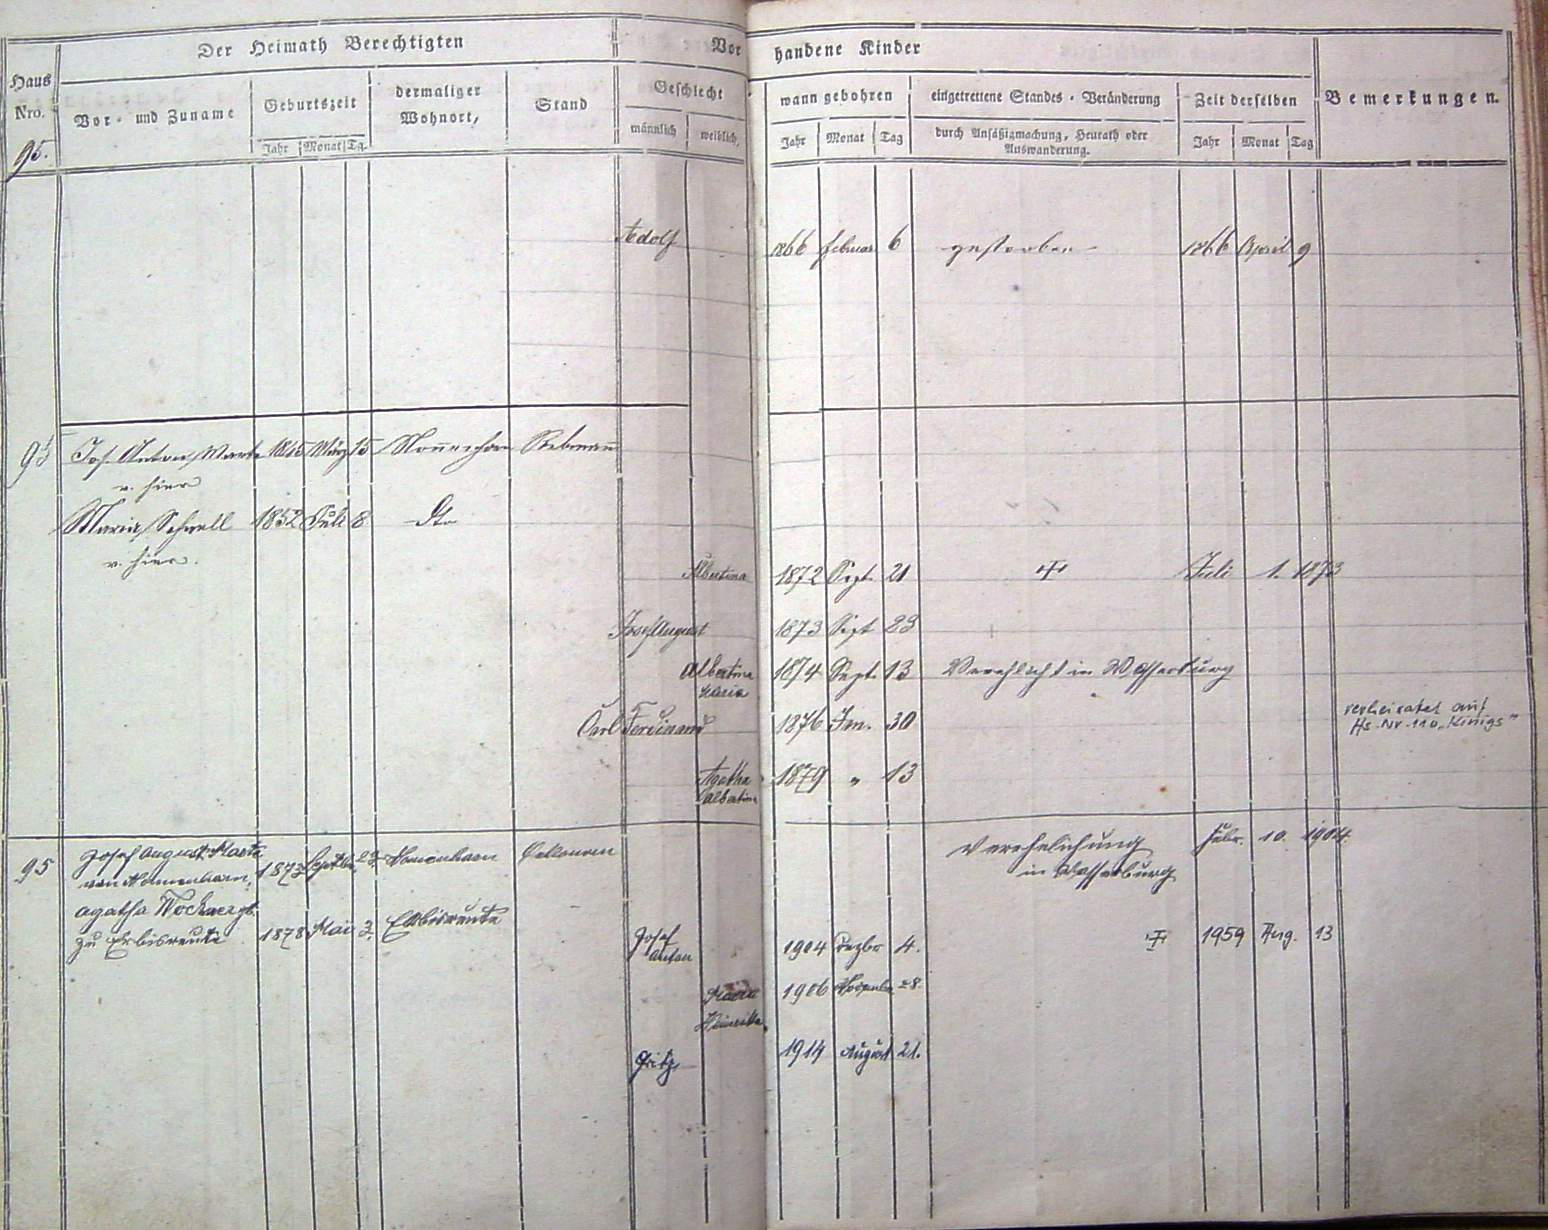 Der Heimath Berechtigten
Vorhandene Kinder
Haus Nro.
Vor- und Zuname
Geburtszeit
dermaliger Wohnort,
Stand
Geschlecht
wann gebohren
eingetrettene Standes-Veränderung
durch Ansäßigmachung, Heurath oder
Auswanderung.
Zeit derselben
Bemerkungen.
Jahr Monat Tg.
männlich weiblich,
Jahr Monat Tag
Jahr Monat Tag
95.
Adolf 1866 Februar 6 gestorben 1866 April 9
95 Jos. Anton Marte März 15 Nonnenhorn Rebmann
v. hier
Maria Schnell 1852 Juli 8 dto
v. hier.
Albertina 1872 Sept. 21 Juli 1. 1873
Josef August 1873 Sept 23
Albertina 1874 Sept. 13 Verehlicht in Wasserburg
Maria
Carl Ferdinand 1876 Jan. 30 verheiratet auf
Hs. Nr. 110 „Königs"
Agatha 1879 " 13
Albertina
95 Josef August Marte 1873 Septbr 23 Nonnenhorn Oekonom Verehelichung Febr. 10. 1904.
von Nonnenhorn, in Wasserburg
Agatha
zu Erbisreute 1878 Mai 3. Erbisreute
Josef 1904 Dezbr 4. 1959 Aug. 13
Anton
Maria 1906 28.
Fritz, 1914 August 21.